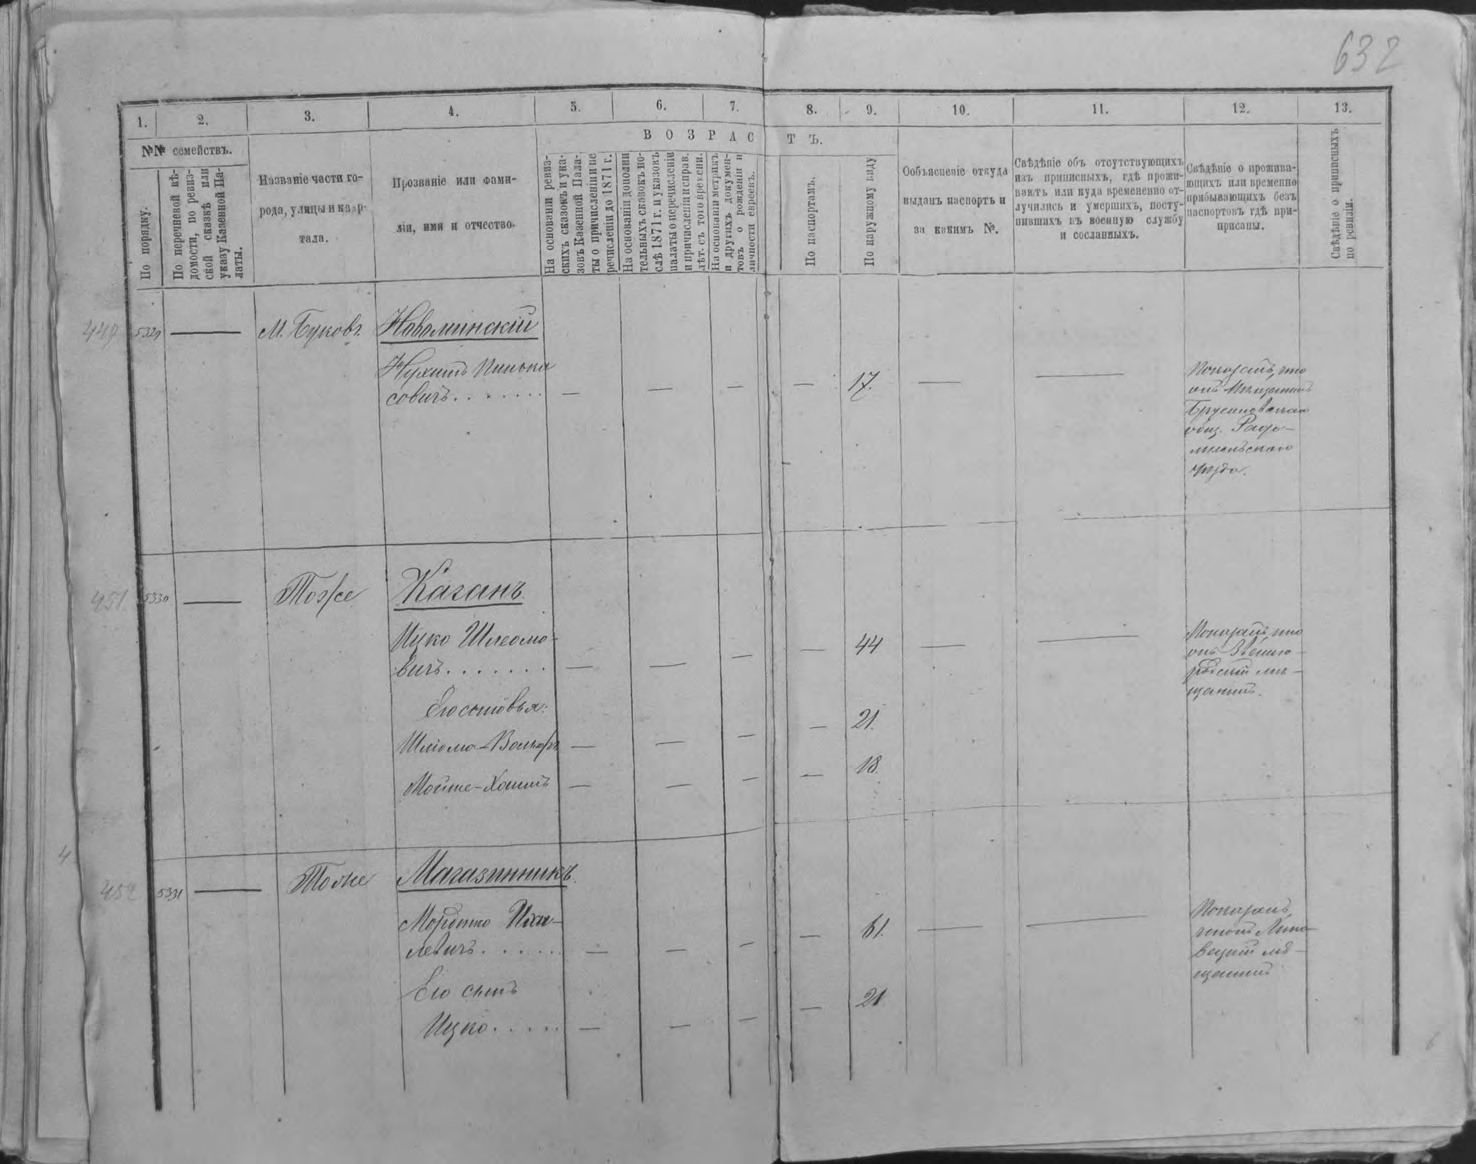 632
1. 2. 3. 4. 5. 6. 7. 8. 9. 10. 11. 12. 13.
№№ семействъ.
По порядку.
По перечневой вѣ-
домости, по ревиз-
ской сказкѣ или
указу Казенной Па-
латы.
Названіе части го-
рода, улицы и квар-
тала.
Прозваніе или фами-
лія, имя и отчество.
ВОЗРАСТЪ.
На основаніи ревиз-
скихъ сказокъ и ука-
зовъ Казенной Пала-
ты о причисленіи и пе
речисленіи до 1871 г.
На основаніи дополни
тельныхъ сказокъ по-
слѣ 1871 г. и указовъ
палаты о перечисленіи
и причисленіи и справ.
лѣт. съ того времени.
На основаніи метрикъ
и другихъ докумен-
товъ о рожденіи и
личности евреевъ.
По паспортамъ.
По наружному виду
Объясненіе откуда
выданъ паспортъ и
за какимъ №.
Свѣдѣніе объ отсутствующихъ
изъ приписныхъ, гдѣ прожи-
ваютъ или куда временно от-
лучились и умершихъ, посту-
пившихъ въ военную службу
и сосланныхъ.
Свѣдѣніе о прожива-
ющихъ или временно
прибывающихъ безъ
паспортовъ гдѣ при-
писаны.
Свѣдѣніе о приписныхъ
по ревизіи.
5329 — М. Буковъ Новоминскій
Нухимъ Пинька
совичъ . . . . . . . — — — — 17. — —
Показалъ, что
онъ мѣщанинъ
Брусиловскаго
общ. Радо-
мысльскаго
уѣзда.
451 5330 — Тоже Каганъ
Ицко Шлемо-
вичъ . . . . . . . — — — — 44 — —
Показалъ, что
онъ Звениго-
родскій мѣ-
щанинъ.
Его сыновья:
Шлема-Вольфъ — — — — 21.
Мойше-Хаимъ — — — — 18
452 5331 — Тоже Магазинникъ
Мордко Ихи-
левичъ . . . . . . — — — — 61. — —
Показалъ,
мѣ-
щанинъ
Его сынъ
Ицко . . . . . — — — — 21